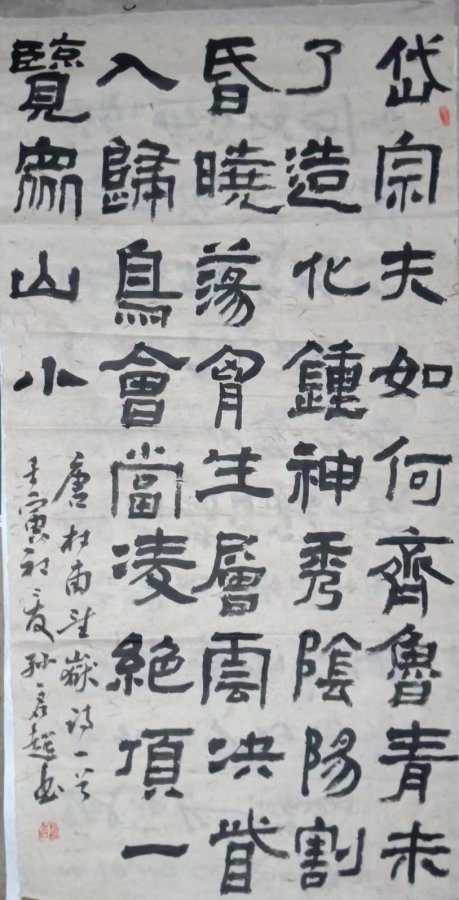 岱宗夫如何齊魯青未
了造化鍾神秀陰陽割
昏曉蕩胷生層雲决眥
入歸鳥會當凌絕頂一
覽眾山小
唐杜甫望嶽詩一首
壬寅初夏孫超書